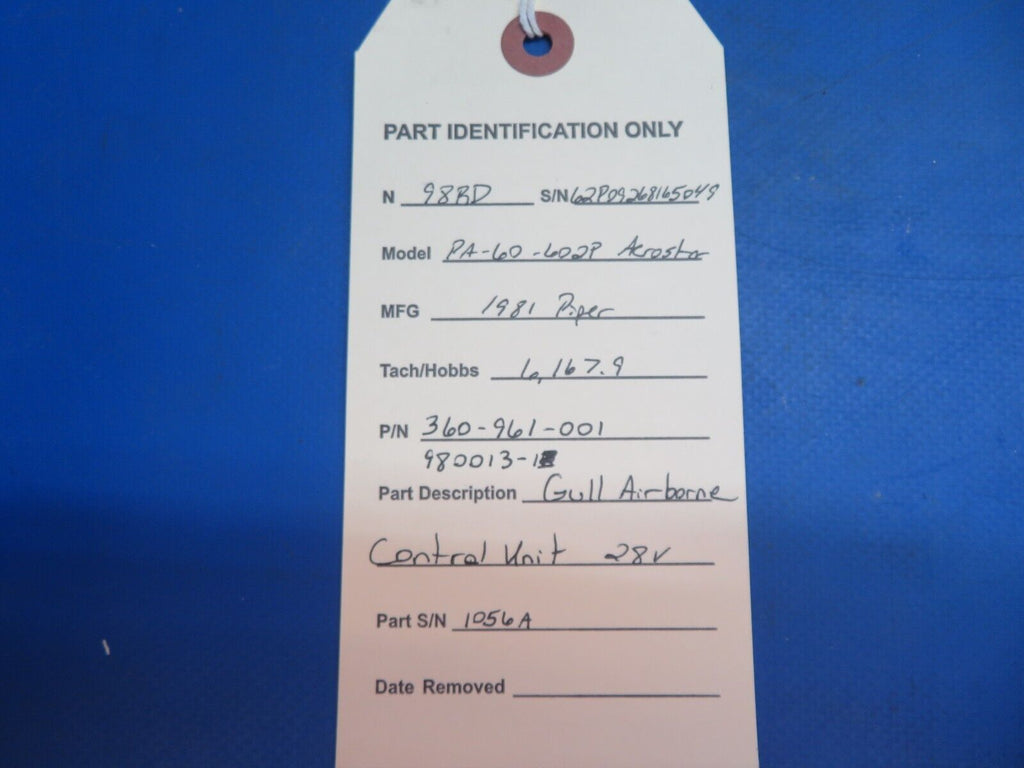 PART IDENTIFICATION ONLY
N 98RD S/N 62P09268165049
Model PA-60-602P Aerostar
MFG 1981 Piper
Tach/Hobbs 6,167.9
P/N 360-961-001
980013-1
Part Description Gull Airborne
Control Unit 28V
Part S/N 1056A
Date Removed